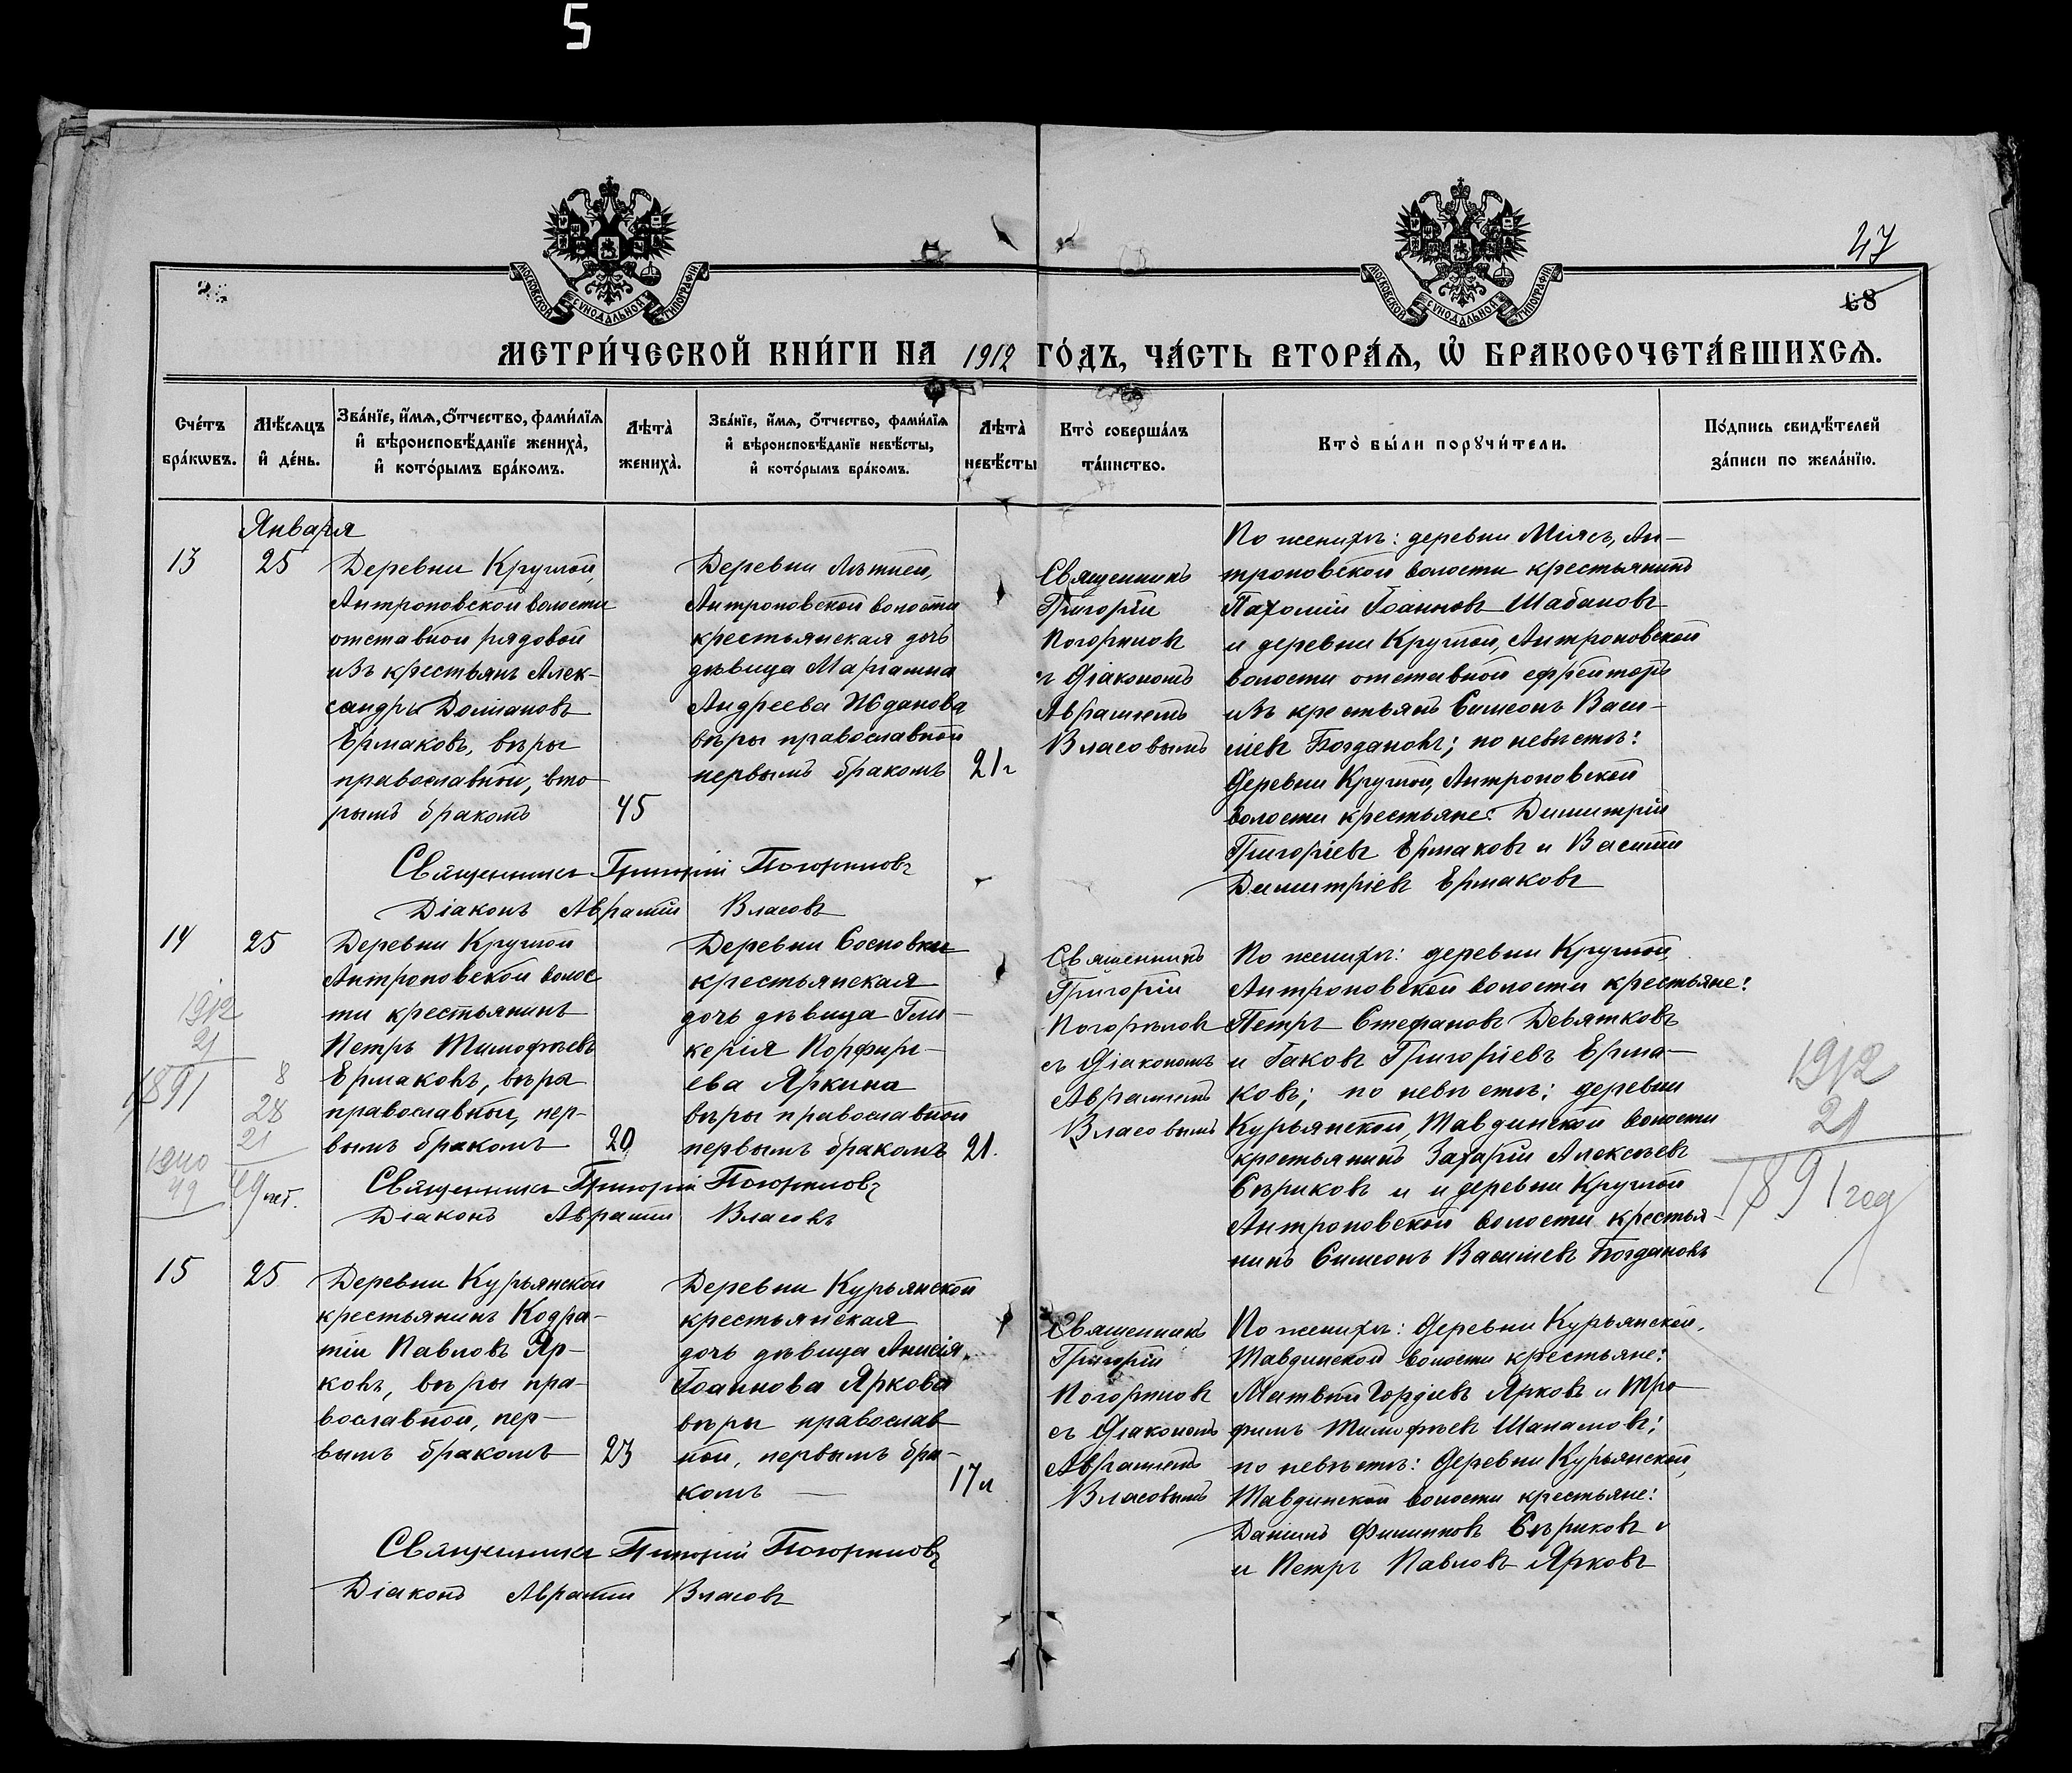 5
МОСКОВСКОЙ СѴНОДАЛЬНОЙ ТИПОГРАФІИ
МОСКОВСКОЙ СѴНОДАЛЬНОЙ ТИПОГРАФІИ
47
68
МЕТРИ́ЧЕСКОЙ КНИ́ГИ НА 1912 ГО́ДЪ, ЧА́СТЬ ВТОРА́Ѧ, Ѡ҆ БРАКОСОЧЕТА́ВШИХСѦ.
Сче́тъ бра́кѡвъ.
Мѣ́сѧцъ и҆ де́нь.
Зва́нїе, и҆́мѧ, ѻ҆́тчество, фами́лїѧ и҆ вѣроисповѣ́данїе жениха̀, и҆ кото́рымъ бра́комъ.
Лѣта̀ жениха̀.
Зва́нїе, и҆́мѧ, ѻ҆́тчество, фами́лїѧ и҆ вѣроисповѣ́данїе невѣ́сты, и҆ кото́рымъ бра́комъ.
Лѣта̀ невѣ́сты
Кто̀ соверша́лъ та́инство.
Кто̀ бы́ли порꙋчи́тели.
По́дпись свидѣ́телей за́писи по жела́нїю.
Января
13
25
Деревни Круглой,
Антроповской волости
отставной рядовой
изъ крестьян Алек-
сандръ
Ермаковъ, вѣры
православной, вто
рымъ бракомъ
45
Деревни Лѣтней,
Антроповской волости
крестьянская дочь
дѣвица Маріамна
Андреева Жданова
вѣры православной
первымъ бракомъ
21 г
Священникъ
Григорій
Погорѣловъ
съ Діакономъ
Авраміемъ
Власовымъ
По женихѣ: деревни Міясъ, Ан-
троповской волости крестьянинъ
Пахомій Іоанновъ Шабановъ
и деревни Круглой, Антроповской
волости отставной ефрейторъ
изъ крестьянъ Симеонъ Васи-
ліевъ Богдановъ; по невѣстѣ:
деревни Круглой, Антроповской
волости крестьяне: Димитрій
Григоріевъ Ермаковъ и Василій
Димитріевъ Ермаковъ
Священникъ Григорій Погорѣловъ
Діаконъ Аврамій Власовъ
14
25
Деревни Круглой
Антроповской волос
ти крестьянинъ
Петръ Тимофѣевъ
Ермаковъ, вѣры
православной, пер-
вымъ бракомъ
20
Деревни Сосновки
крестьянская
дочь дѣвица Гли-
керія Порфирі-
ева Яркина
вѣры православной
первымъ бракомъ
21.
Священникъ
Григорій
Погорѣловъ
съ Діакономъ
Авраміемъ
Власовымъ
По женихѣ: деревни Круглой
Антроповской волости крестьяне:
Петръ Стефановъ Девятковъ
и Іаковъ Григоріевъ Ерма-
ковъ; по невѣстѣ: деревни
Курьянской, Тавдинской волости
крестьянинъ Захарій Алексѣевъ
Сѣриковъ и и деревни Круглой
Антроповской волости крестья-
нинъ Симеонъ Василіевъ Богдановъ
1912
21
1891
8
28
21
1940
49
49 лет.
1912
21
1891 год
Священникъ Григорій Погорѣловъ
Діаконъ Аврамій Власовъ
15
25
Деревни Курьянской
крестьянинъ Кодра-
тій Павловъ Яр-
ковъ, вѣры пра-
вославной, пер-
вымъ бракомъ
23
Деревни Курьянской
крестьянская
дочь дѣвица Анисія
Іоаннова Яркова
вѣры православ
ной, первымъ бра-
комъ —
17 л
Священникъ
Григорій
Погорѣловъ
съ Діакономъ
Авраміемъ
Власовымъ
По женихѣ: деревни Курьянской,
Тавдинской волости крестьяне:
Матвѣй Гордіевъ Ярковъ и Тро-
фимъ Тимофѣевъ
по невѣстѣ: деревни Курьянской,
Тавдинской волости крестьяне:
Даніилъ Филипповъ Сѣриковъ
и Петръ Павловъ Ярковъ
Священникъ Григорій Погорѣловъ
Діаконъ Аврамій Власовъ